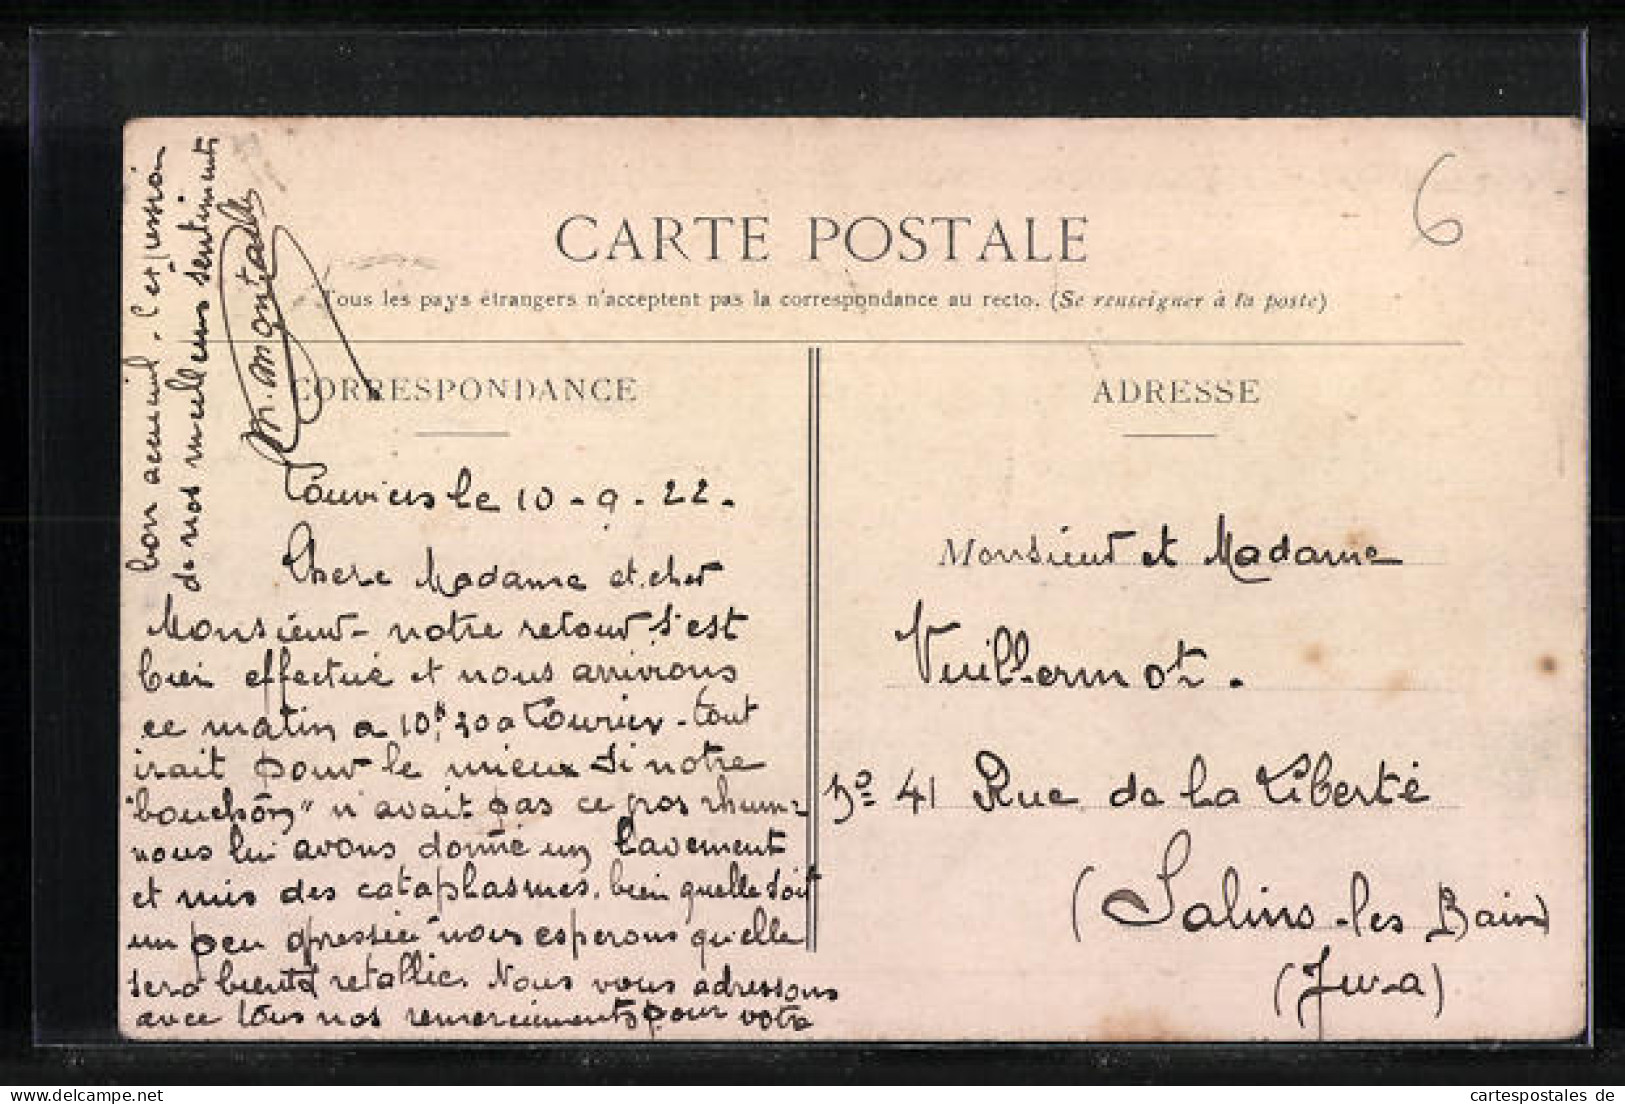 6
CARTE POSTALE
Tous les pays étrangers n'acceptent pas la correspondance au recto. (Se renseigner à la poste)
CORRESPONDANCE
Louviers le 10-9-22.
Chere Madame et cher
Monsieur - notre retour s'est
bien effectué et nous arrivions
ce matin a 10h, 30 a - tout
irait pour le mieux si notre
"bouchon" n'avait pas ce gros rhume
nous lui avons donné un lavement
et mis des cataplasmes. bien quelle soit
un peu nous esperons qu'elle
sera bientot retablie. Nous vous adressons
avec tous nos remerciements pour votre
bon acceuil. l'expression
de nos meilleurs sentiments
M.
ADRESSE
Monsieur et Madame
Vuillermoz.
No 41 Rue de la Liberté
(Salins-les Bains
(Jura)
cartespostales de